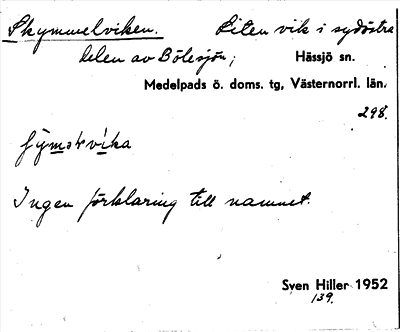 Skymmelviken. Liten vik i sydöstra
delen av Bölesjön; Hässjö sn.
Medelpads ö. doms. tg, Västernorrl. län.
298.
Ingen förklaring till namnet.
Sven Hiller 1952
139.